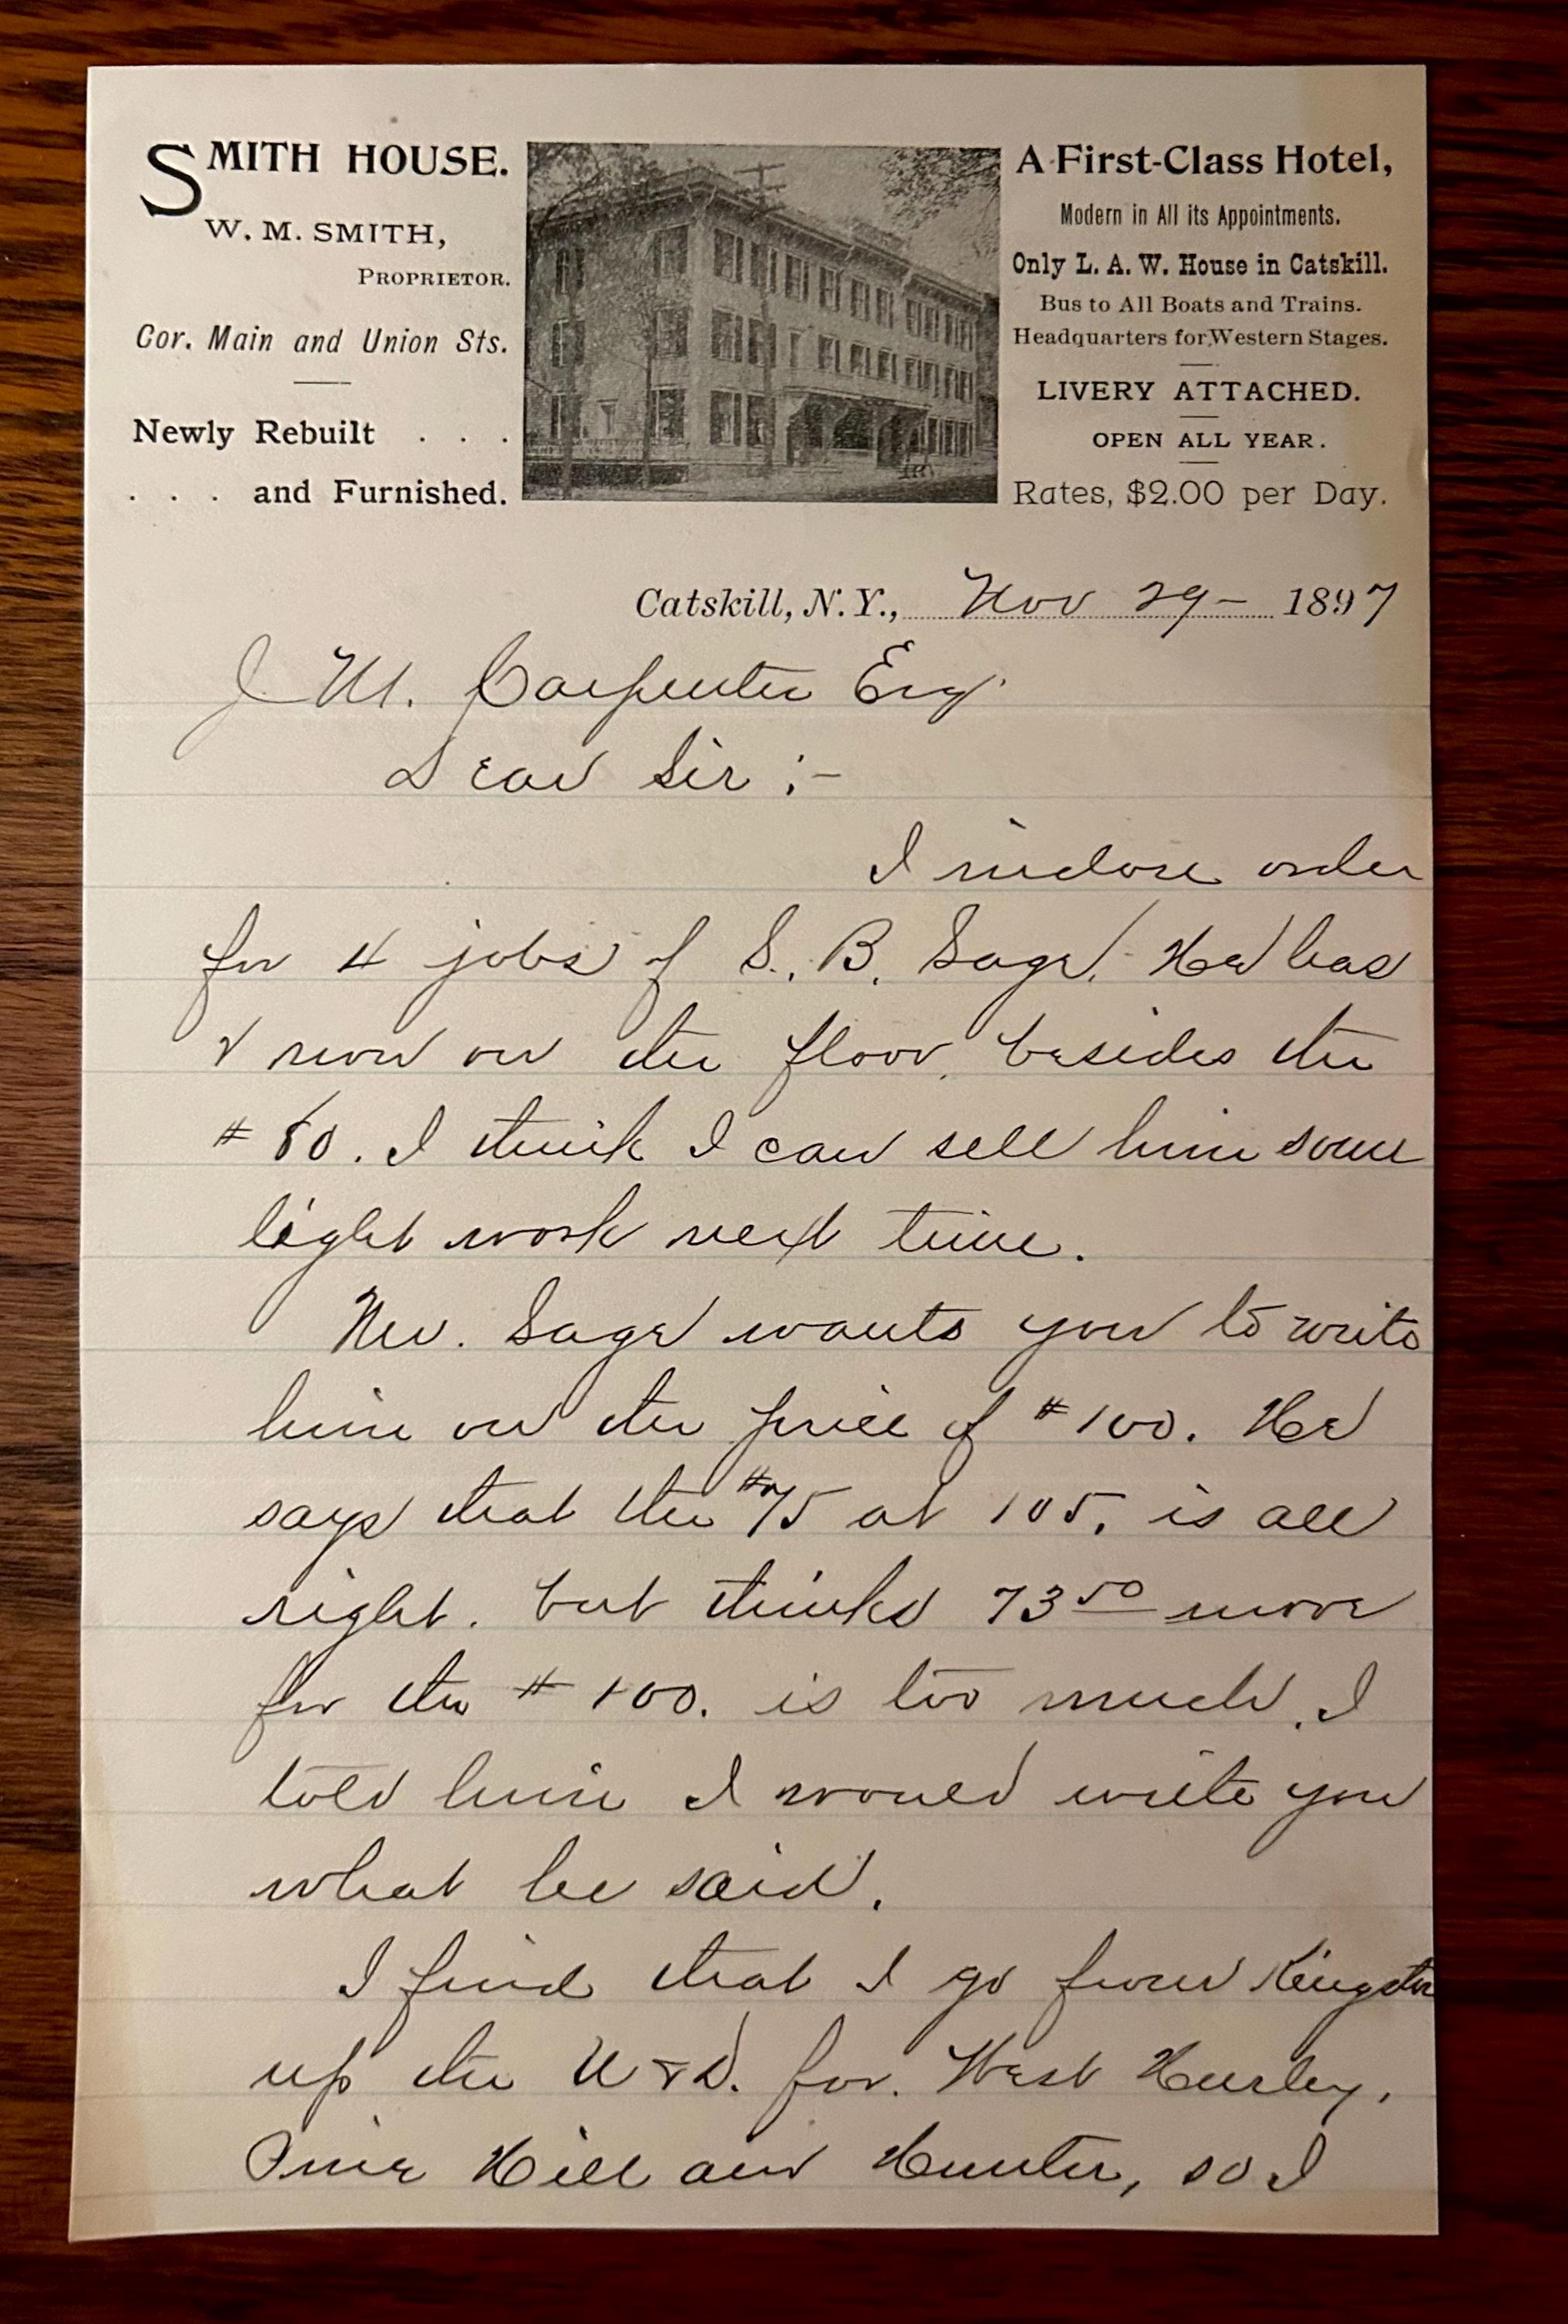 SMITH HOUSE.
W. M. SMITH,
PROPRIETOR.
Cor. Main and Union Sts.
Newly Rebuilt . . .
. . . and Furnished.
A First-Class Hotel,
Modern in All its Appointments.
Only L. A. W. House in Catskill.
Bus to All Boats and Trains.
Headquarters for Western Stages.
LIVERY ATTACHED.
OPEN ALL YEAR.
Rates, $2.00 per Day.
Catskill, N. Y., Nov 29 - 1897
J M. Carpenter Esq.
Dear Sir :-
I inclose order
for 4 jobs of S. B. Sage. He has
now on the floor, besides the
# 80. I think I can sell him some
light work next time.
Mr. Sage wants you to write
him on the price of # 100. He
says that the #75 at 105. is all
right. but thinks 73 50 more
for the # 100. is too much. I
told him I would write you
what he said.
I find that I go from Kingston
up the U & D. for. West Hurley,
Pine Hill and Hunter, so I